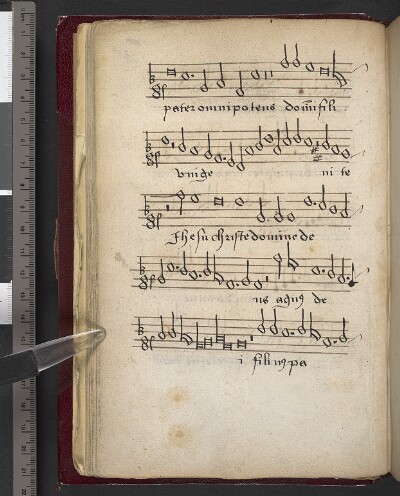 pater omnipotens domi fili
vnige ni te
Jhesu christe domine de
us agnus de
i filius pa